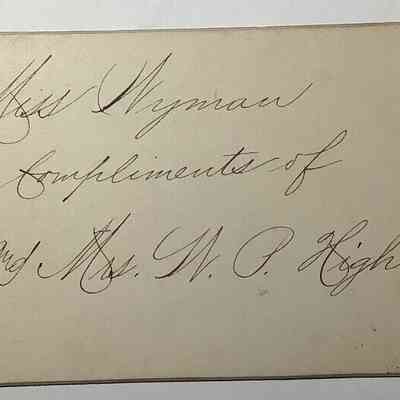 Miss Wyman
Compliments of
and Mrs. W. P. High